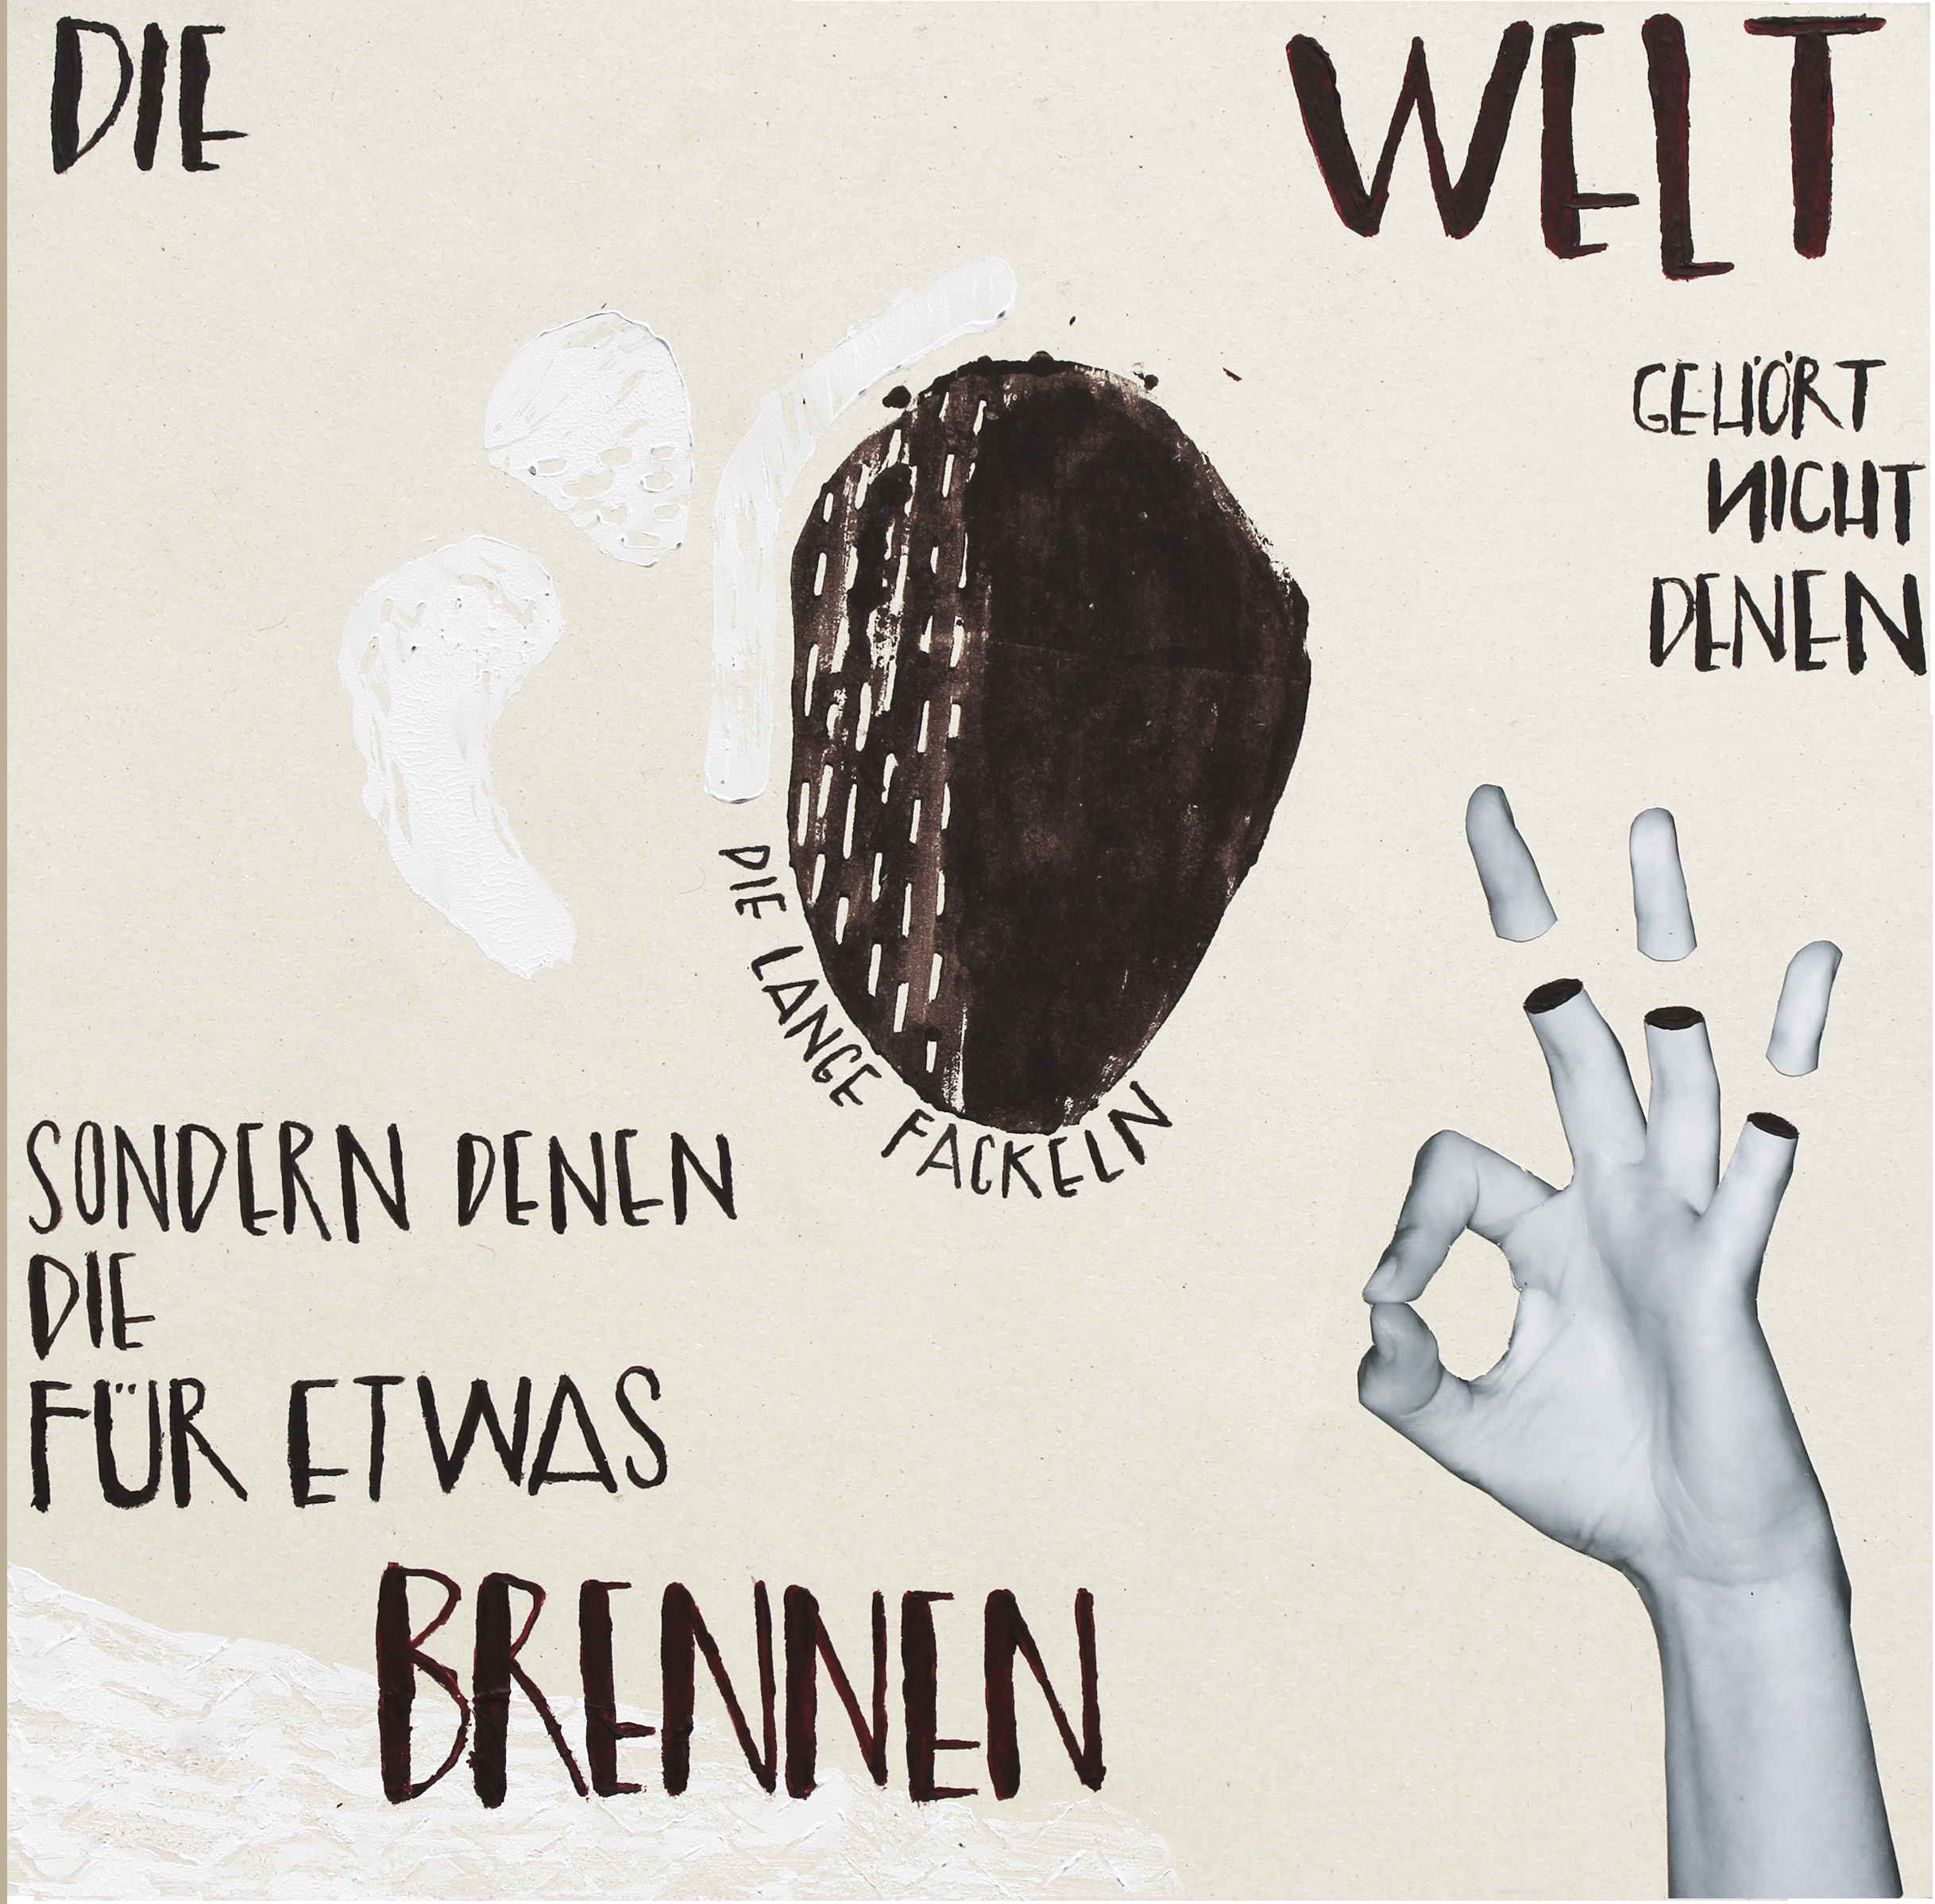 DIE WELT
GEHÖRT
NICHT
DENEN
DIE LANGE FACKELN
SONDERN DENEN
DIE
FÜR ETWAS
BRENNEN